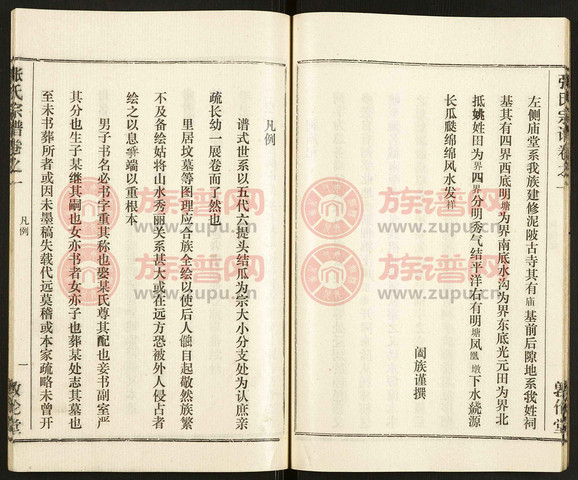 张氏宗谱卷之一
左侧庙堂系我族建修泥陂古寺其有庙基前后隙地系我姓祠
基其有四界西底明塘为界南底水沟为界东底光元田为界北
抵姚姓田为界四界分明秀气结平洋右有明塘凤凰墩下水绕源
长瓜瓞绵绵风水发祥
阖族谨撰
敦伦堂
凡例
谱式世系以五代六提头结瓜为宗大小分支处为认庶亲
疏长幼一展卷而了然也
里居坟墓等图理应合族全绘以使后人触目起敬然族繁
不及备绘姑将山水秀丽关系甚大或在远方恐被外人侵占者
绘之以息衅端以重根本
男子书名必书字重其称也娶某氏尊其配也妾书副室严
其分也生子某继其嗣也女亦书者女亦子也葬某处志其墓也
至未书葬所者或因未墨稿失载代远莫稽或本家疏略未曾开
张氏宗谱卷之一
凡例
一
敦伦堂
族谱网
www.zupu.cn
族谱网
www.zupu.cn